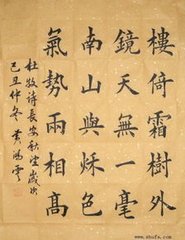 樓倚霜樹外
鏡天無一毫
南山與秋色
氣勢兩相高
杜牧詩長安秋望歲次
己丑仲冬 黄